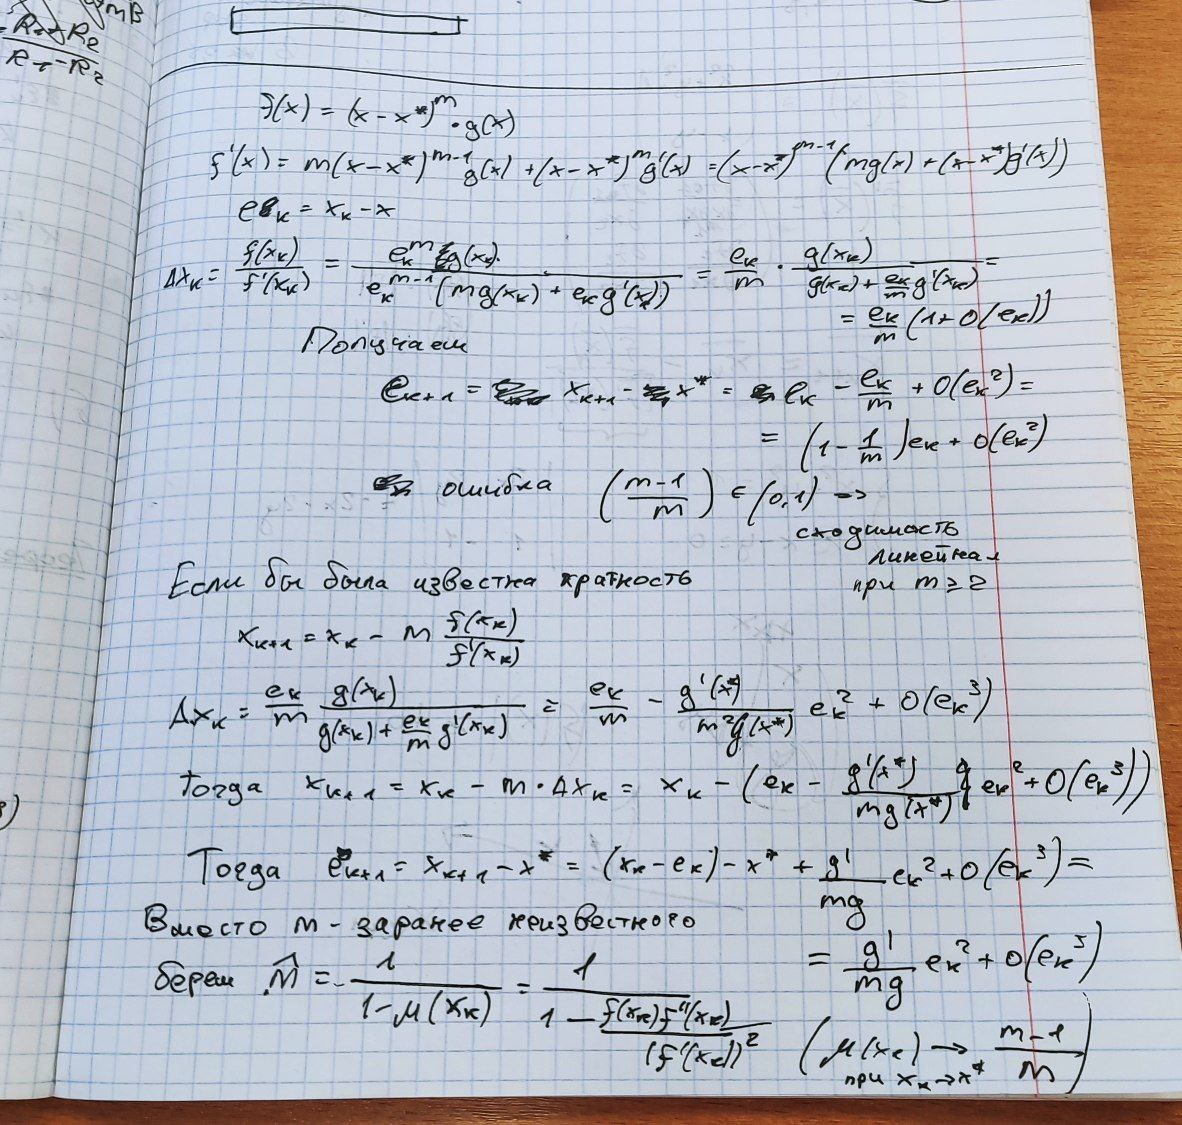 mB
R₁ R₂
R₁ - R₂
f(x) = (x - x*)^m · g(x)
f'(x) = m(x - x*)^{m-1} g(x) + (x - x*)^m g'(x) = (x - x*)^{m-1} (mg(x) + (x - x*)g'(x))
e_k = x_k - x
Δx_k = f(x_k) / f'(x_k) = e_k^m g(x_k) / e_k^{m-1} (mg(x_k) + e_k g'(x_k)) = e_k/m · g(x_k) / (g(x_k) + e_k/m g'(x_k)) =
= e_k/m (1 + O(e_k))
Получаем
e_{k+1} = x_{k+1} - x* = e_k - e_k/m + O(e_k²) =
= (1 - 1/m) e_k + O(e_k²)
ошибка ((m-1)/m) ∈ (0,1) →
сходимость
линейная
при m ≥ 2
Если бы была известна кратность
x_{k+1} = x_k - m f(x_k)/f'(x_k)
Δx_k = e_k/m g(x_k) / (g(x_k) + e_k/m g'(x_k)) = e_k/m - g'(x*)/(m² g(x*)) e_k² + O(e_k³)
Тогда x_{k+1} = x_k - m · Δx_k = x_k - (e_k - g'(x*)/(mg(x*)) e_k² + O(e_k³))
Тогда e_{k+1} = x_{k+1} - x* = (x_k - e_k) - x* + g'/(mg) e_k² + O(e_k³) =
= g'/(mg) e_k² + O(e_k³)
Вместо m - заранее неизвестного
берем m̂ = 1/(1 - μ(x_k)) = 1/(1 - f(x_k)f''(x_k)/(f'(x_k))²)
(μ(x_k) → (m-1)/m)
при x_k → x*